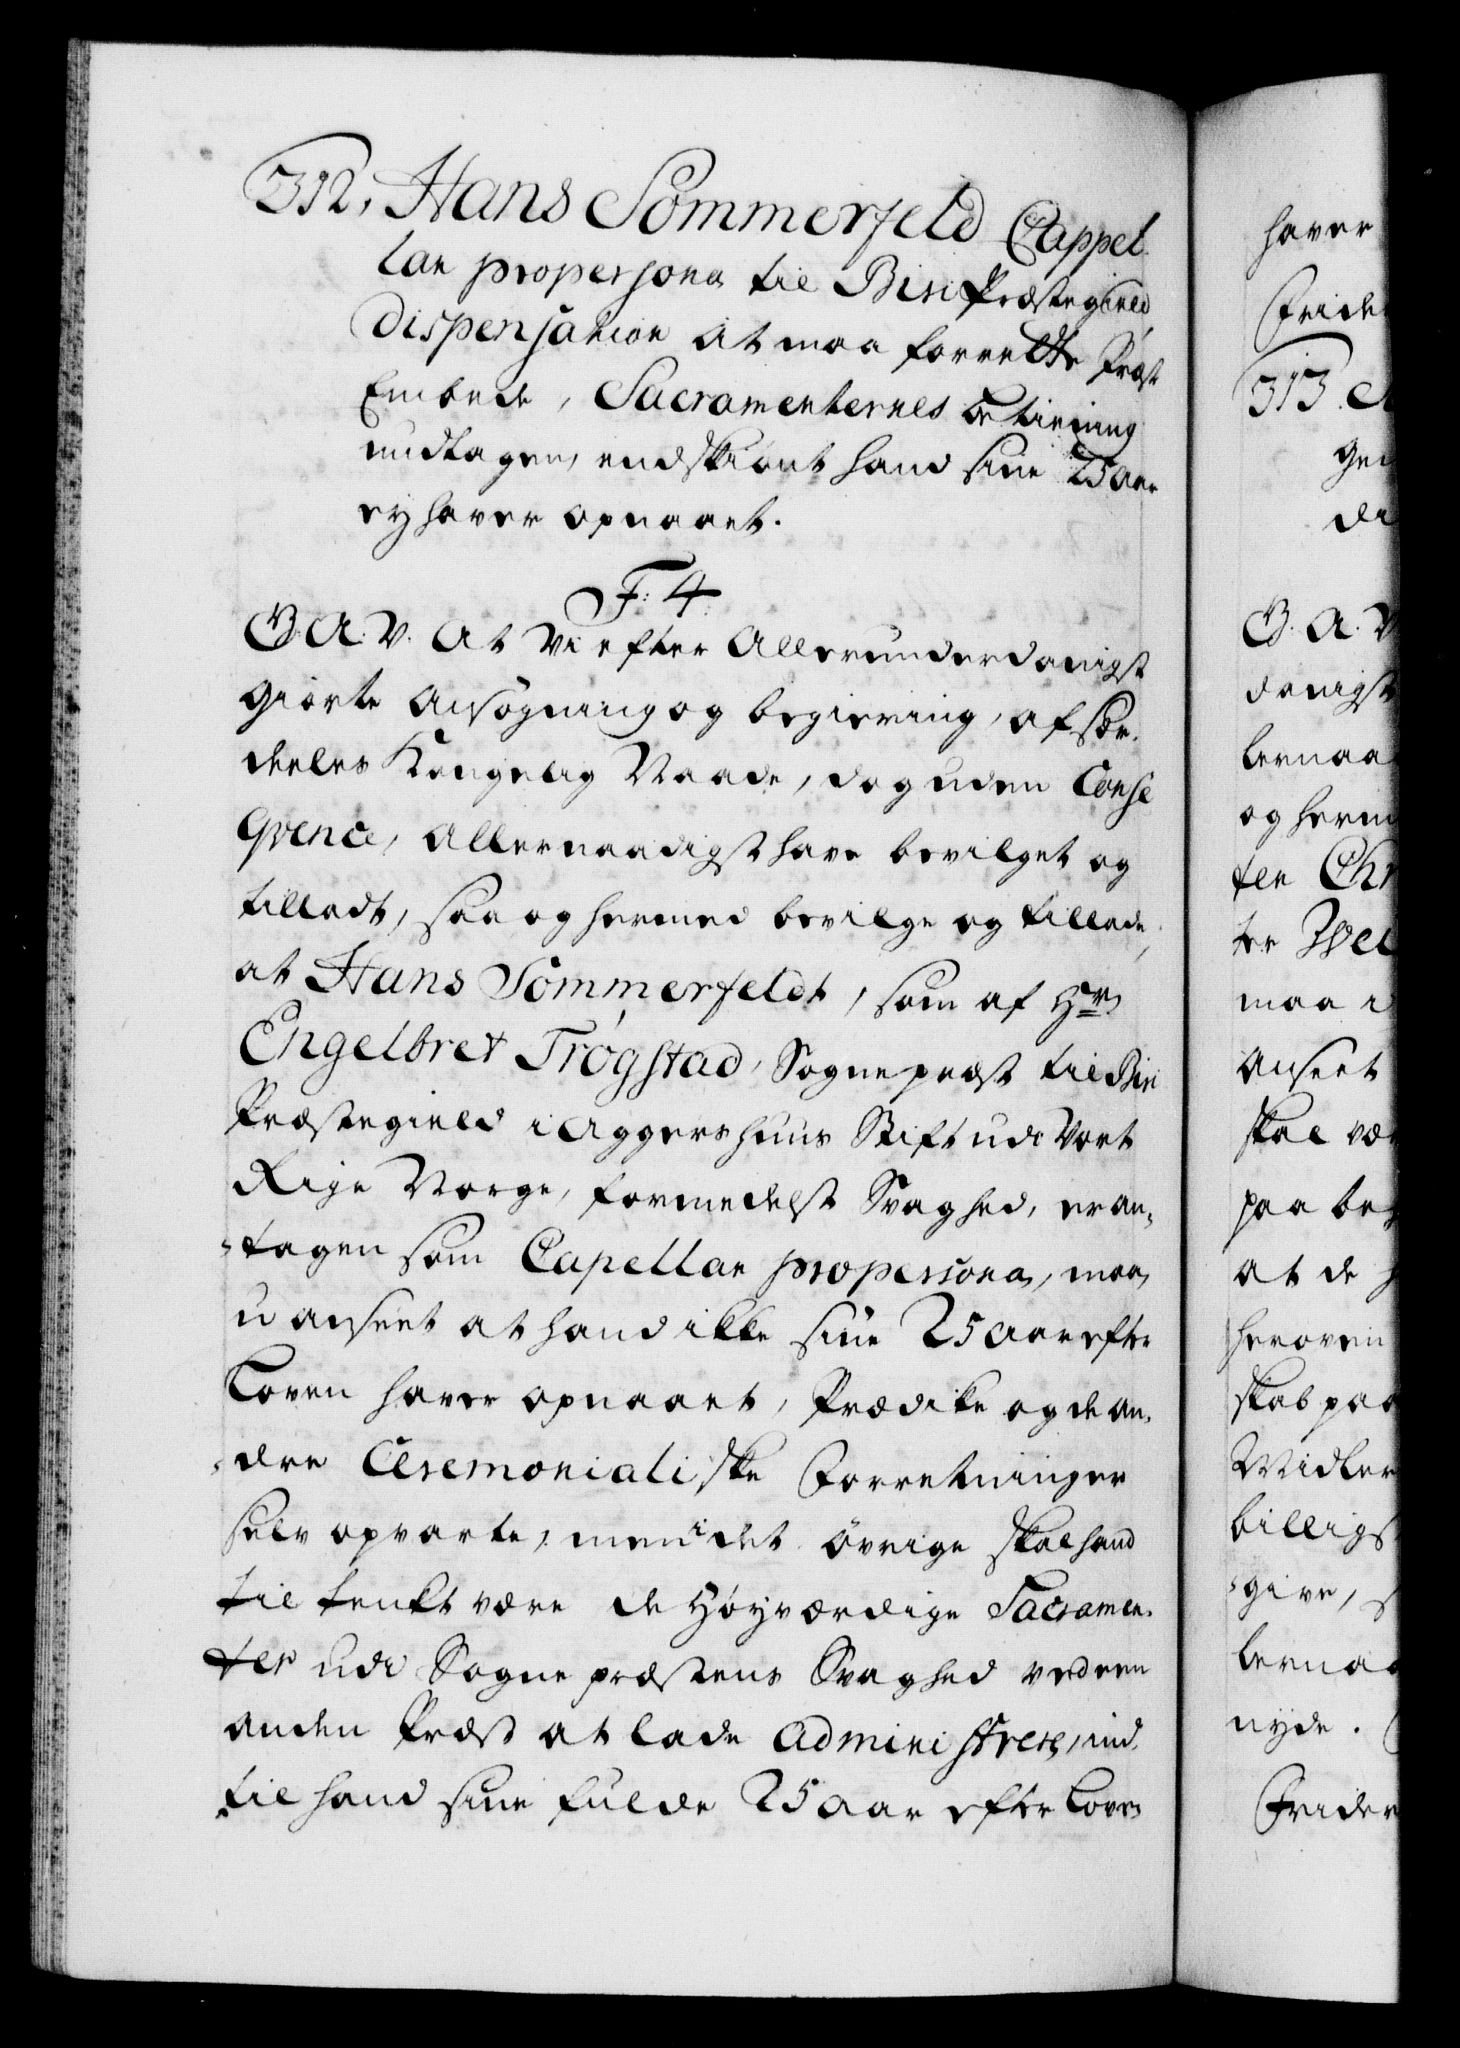 312, Hans Sommerfeld Cappel
lan propersona til Biri Præstegield
Dispensation at maa forrette Præst
Embede, Sacramenternes betiening
undtagen, endskiönt hand sine 25 aar
ey haver opnaaet.
F: 4.
G. A. V. At Vi efter Allerunderdanigst
giorte Ansøgning og begiering, af sær¬
deeles Kongelig Naade, dog uden Conse
qvence, Allernaadigst have bevilget og
tilladt, saa og hermed bevilge og tillade,
at Hans Sommerfeldt, som af Hr
Engelbret Trøgstad, Sognepræst til Biri
Præstegield i Aggershuus Stift udi Vort
Rige Norge, formedelst Svaghed, er an¬
tagen som Capellan propersona, maa,
uanseet at hand ikke sine 25 Aar efter
Loven haver opnaaet, Prædike og de an¬
dre Ceremonialiske Forretninger
selv opvarte, men i det øvrige skal hand
til tænkt være de Høyværdige Sacramen¬
ter udi Sognepræstens Svaghed ved een
anden Præst at lade administrere, ind¬
til hand sine fulde 25 aar efter Loven
haver
Frider
313.
gen
di
G. A. V
danigst
lernaa
og herm
ten Chr
ter Wel
maa i
anseet
skal vær
paa be
at de h
heroven
skab paa
Midler
billigs
give, s
lernaa
nyde.
Frider